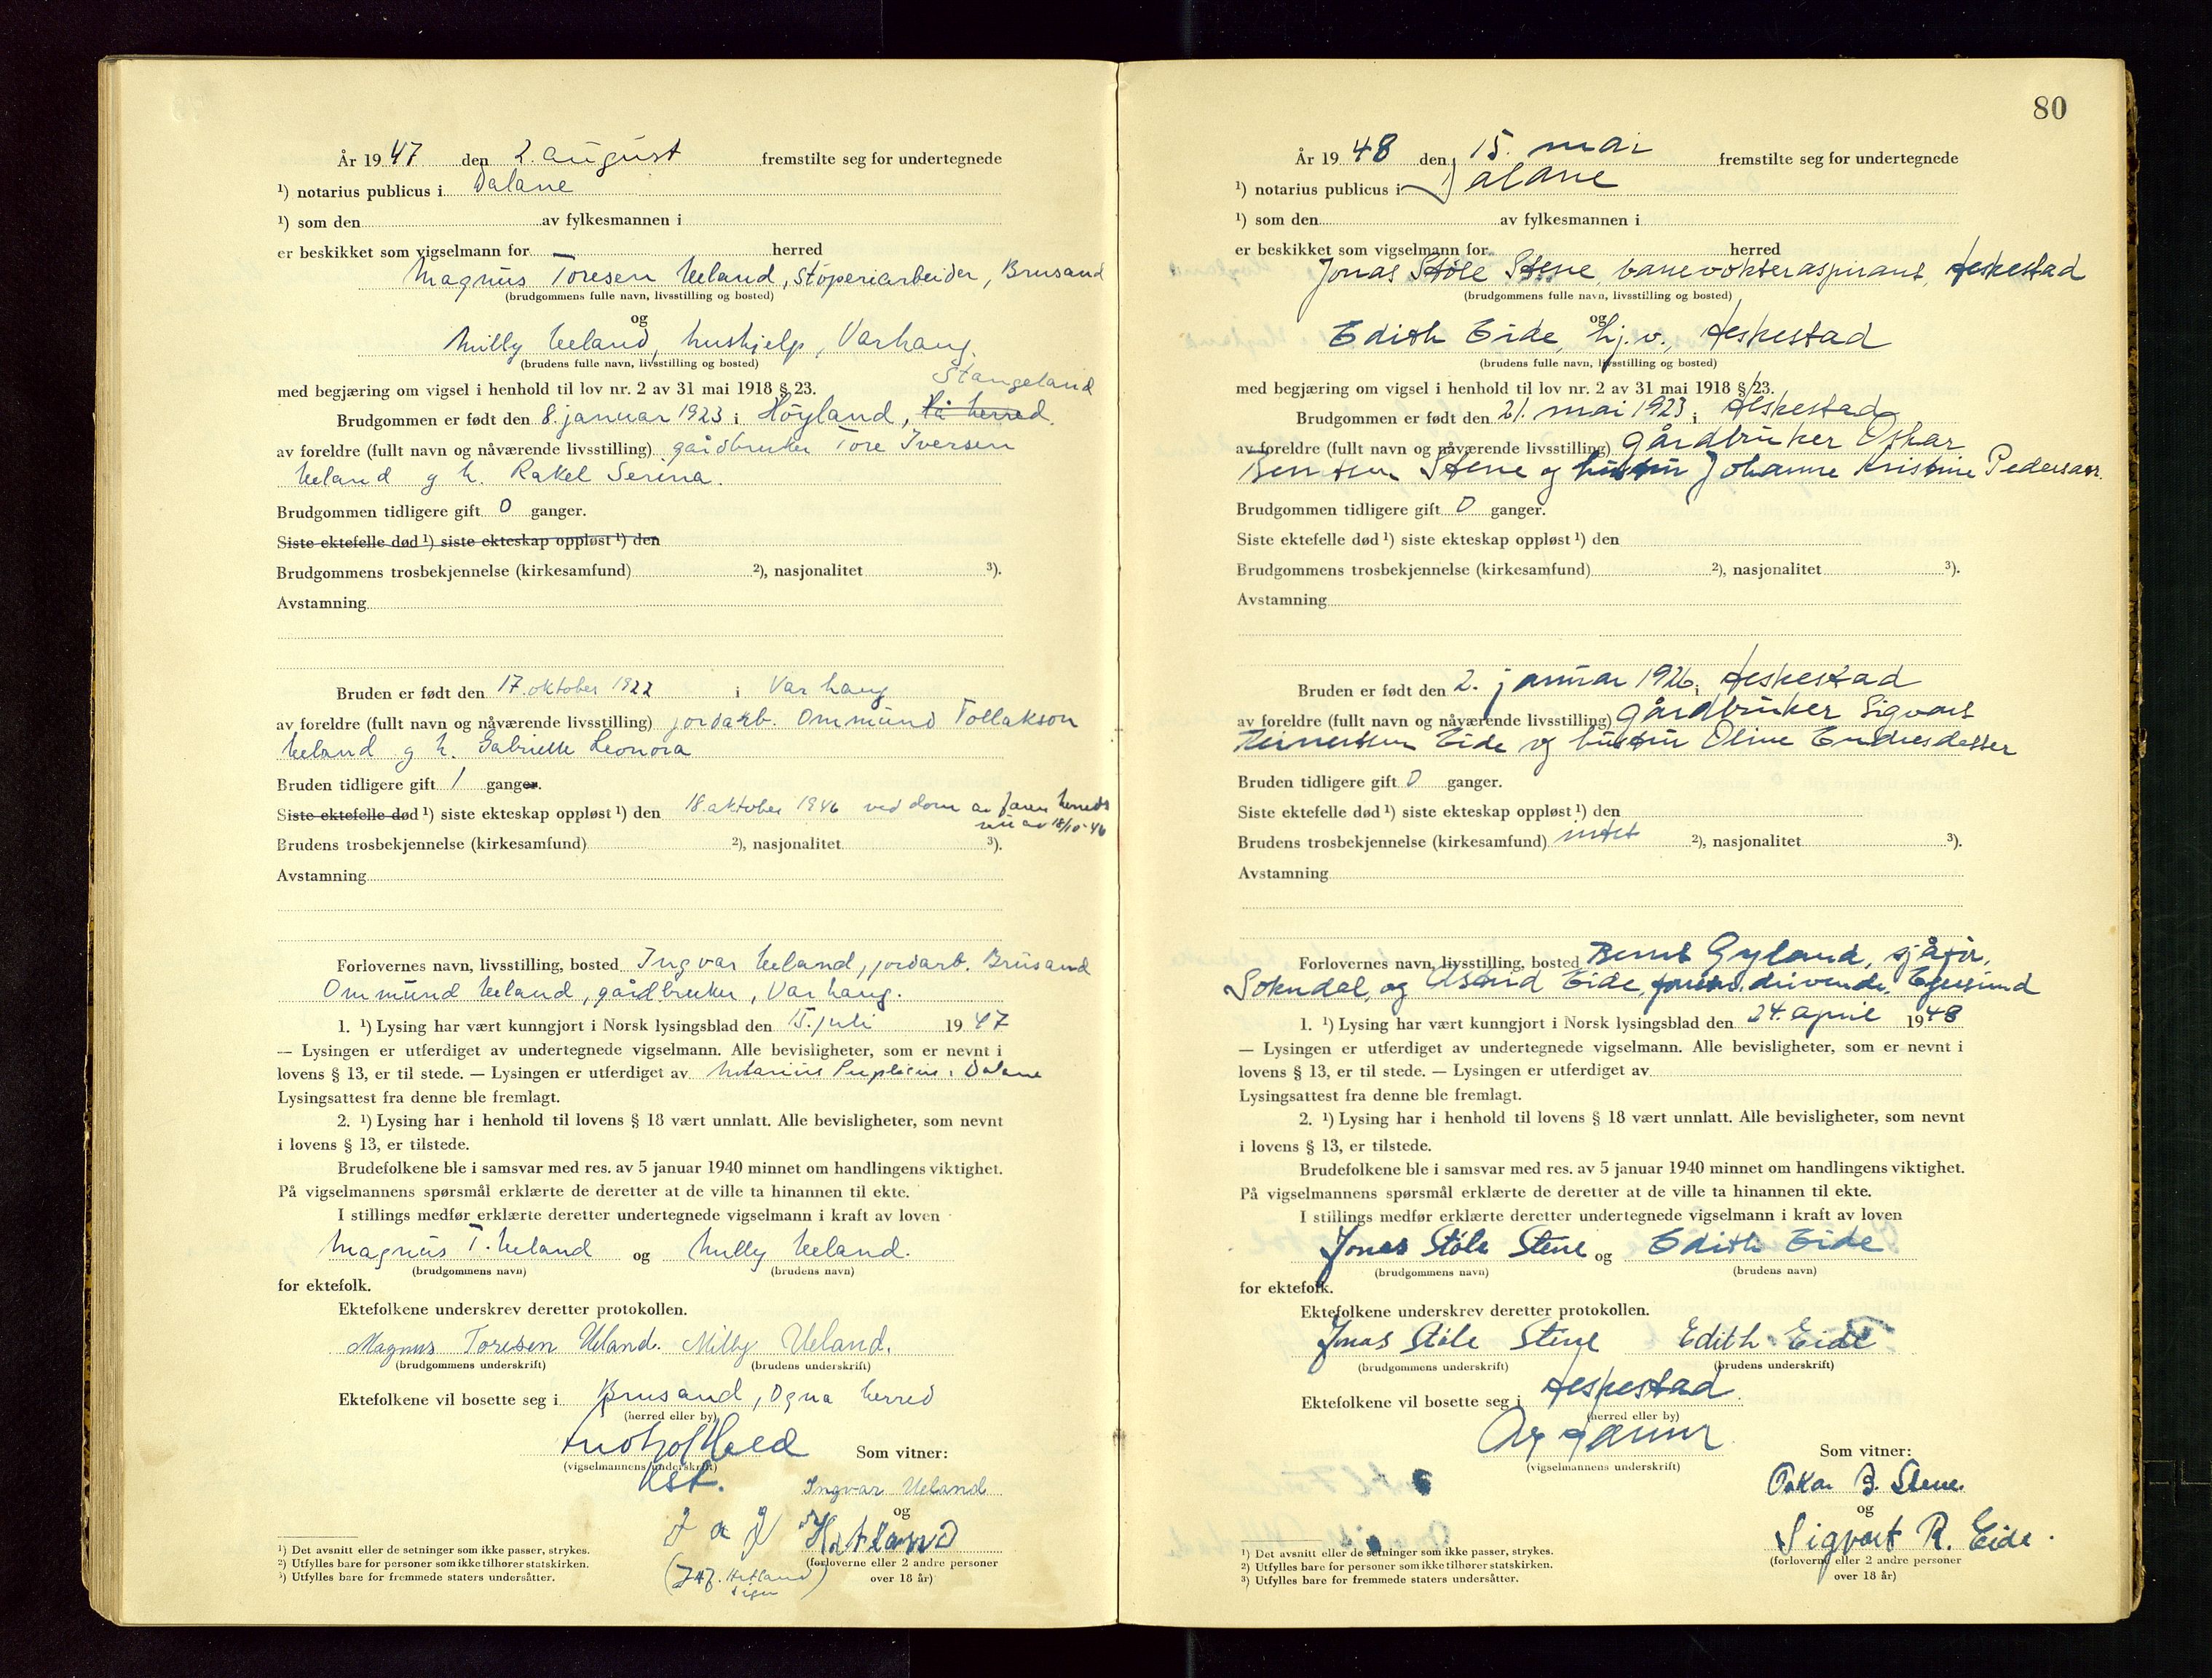 År 1947 den 2. august fremstilte seg for undertegnede
¹) notarius publicus i Dalane
¹) som den av fylkesmannen i
er beskikket som vigselmann for herred
Magnus Toresen Ueland, støperiarbeider, Brusand
(brudgommens fulle navn, livsstilling og bosted)
og
Milly Ueland, hushjelp, Varhaug.
(brudens fulle navn, livsstilling og bosted)
med begjæring om vigsel i henhold til lov nr. 2 av 31 mai 1918 § 23.
Stangeland
Brudgommen er født den 8. januar 1923 i Höyland, Hå herred.
av foreldre (fullt navn og nåværende livsstilling) gårdbruker Tore Iversen
Ueland g h. Rakel Serina.
Brudgommen tidligere gift 0 ganger.
Siste ektefelle død ¹) siste ekteskap oppløst ¹) den
Brudgommens trosbekjennelse (kirkesamfund) ²), nasjonalitet ³).
Avstamning
Bruden er født den 17. oktober 1922 i Varhaug
av foreldre (fullt navn og nåværende livsstilling) jordarb. Ommund Tollakson
Ueland g h. Gabrielle Leonora
Bruden tidligere gift 1 ganger.
Siste ektefelle død ¹) siste ekteskap oppløst ¹) den 18. oktober 1946 ved dom av Jæren herreds
rett av 18/10-46
Brudens trosbekjennelse (kirkesamfund) ²), nasjonalitet ³).
Avstamning
Forlovernes navn, livsstilling, bosted Ingvar Ueland, jordarb. Brusand
Ommund Ueland, gårdbruker, Varhaug.
1. ¹) Lysing har vært kunngjort i Norsk lysingsblad den 15. juli 1947
— Lysingen er utferdiget av undertegnede vigselmann. Alle bevisligheter, som er nevnt i
lovens § 13, er til stede. — Lysingen er utferdiget av Notarius Puplicus i Dalane
Lysingsattest fra denne ble fremlagt.
2. ¹) Lysing har i henhold til lovens § 18 vært unnlatt. Alle bevisligheter, som nevnt
i lovens § 13, er tilstede.
Brudefolkene ble i samsvar med res. av 5 januar 1940 minnet om handlingens viktighet.
På vigselmannens spørsmål erklærte de deretter at de ville ta hinannen til ekte.
I stillings medfør erklærte deretter undertegnede vigselmann i kraft av loven
Magnus T. Ueland og Milly Ueland.
(brudgommens navn) (brudens navn)
for ektefolk.
Ektefolkene underskrev deretter protokollen.
Magnus Toresen Ueland. Milly Ueland.
(brudgommens underskrift) (brudens underskrift)
Ektefolkene vil bosette seg i Brusand, Ogna herred
(herred eller by)
Som vitner:
(vigselmannens underskrift)
kst.
Ingvar Ueland
og
J a J Hetland
(forloverne eller 2 andre personer
over 18 år)
(J A J. Hetland
sign)
¹) Det avsnitt eller de setninger som ikke passer, strykes.
²) Utfylles bare for personer som ikke tilhører statskirken.
³) Utfylles bare for fremmede staters undersåtter.
80
År 1948 den 15. mai fremstilte seg for undertegnede
¹) notarius publicus i Dalane
¹) som den av fylkesmannen i
er beskikket som vigselmann for herred
Jonas Støle Stene, banevokteraspirant, Heskestad
(brudgommens fulle navn, livsstilling og bosted)
og
Edith Eide, hj.v., Heskestad
(brudens fulle navn, livsstilling og bosted)
med begjæring om vigsel i henhold til lov nr. 2 av 31 mai 1918 § 23.
Brudgommen er født den 21. mai 1923 i Heskestad
av foreldre (fullt navn og nåværende livsstilling) gårdbruker Oskar
Berntsen Stene og hustru Johanne Kristine Pedersdtr.
Brudgommen tidligere gift 0 ganger.
Siste ektefelle død ¹) siste ekteskap oppløst ¹) den
Brudgommens trosbekjennelse (kirkesamfund) ²), nasjonalitet ³).
Avstamning
Bruden er født den 2. januar 1926 i Heskestad
av foreldre (fullt navn og nåværende livsstilling) gårdbruker Sigvart
Reinertsen Eide og hustru Oline Endresdatter
Bruden tidligere gift 0 ganger.
Siste ektefelle død ¹) siste ekteskap oppløst ¹) den
Brudens trosbekjennelse (kirkesamfund) intet ²), nasjonalitet ³).
Avstamning
Forlovernes navn, livsstilling, bosted Bernt Gyland, sjåfør,
Sokndal, og Eide, drivende, Egersund
1. ¹) Lysing har vært kunngjort i Norsk lysingsblad den 24. april 1948
— Lysingen er utferdiget av undertegnede vigselmann. Alle bevisligheter, som er nevnt i
lovens § 13, er til stede. — Lysingen er utferdiget av
Lysingsattest fra denne ble fremlagt.
2. ¹) Lysing har i henhold til lovens § 18 vært unnlatt. Alle bevisligheter, som nevnt
i lovens § 13, er tilstede.
Brudefolkene ble i samsvar med res. av 5 januar 1940 minnet om handlingens viktighet.
På vigselmannens spørsmål erklærte de deretter at de ville ta hinannen til ekte.
I stillings medfør erklærte deretter undertegnede vigselmann i kraft av loven
Jonas Støle Stene og Edith Eide
(brudgommens navn) (brudens navn)
for ektefolk.
Ektefolkene underskrev deretter protokollen.
Jonas Støle Stene Edith Eide
(brudgommens underskrift) (brudens underskrift)
Ektefolkene vil bosette seg i Heskestad
(herred eller by)
Som vitner:
(vigselmannens underskrift)
Oskar B. Stene.
og
Sigvart R. Eide.
(forloverne eller 2 andre personer
over 18 år)
¹) Det avsnitt eller de setninger som ikke passer, strykes.
²) Utfylles bare for personer som ikke tilhører statskirken.
³) Utfylles bare for fremmede staters undersåtter.